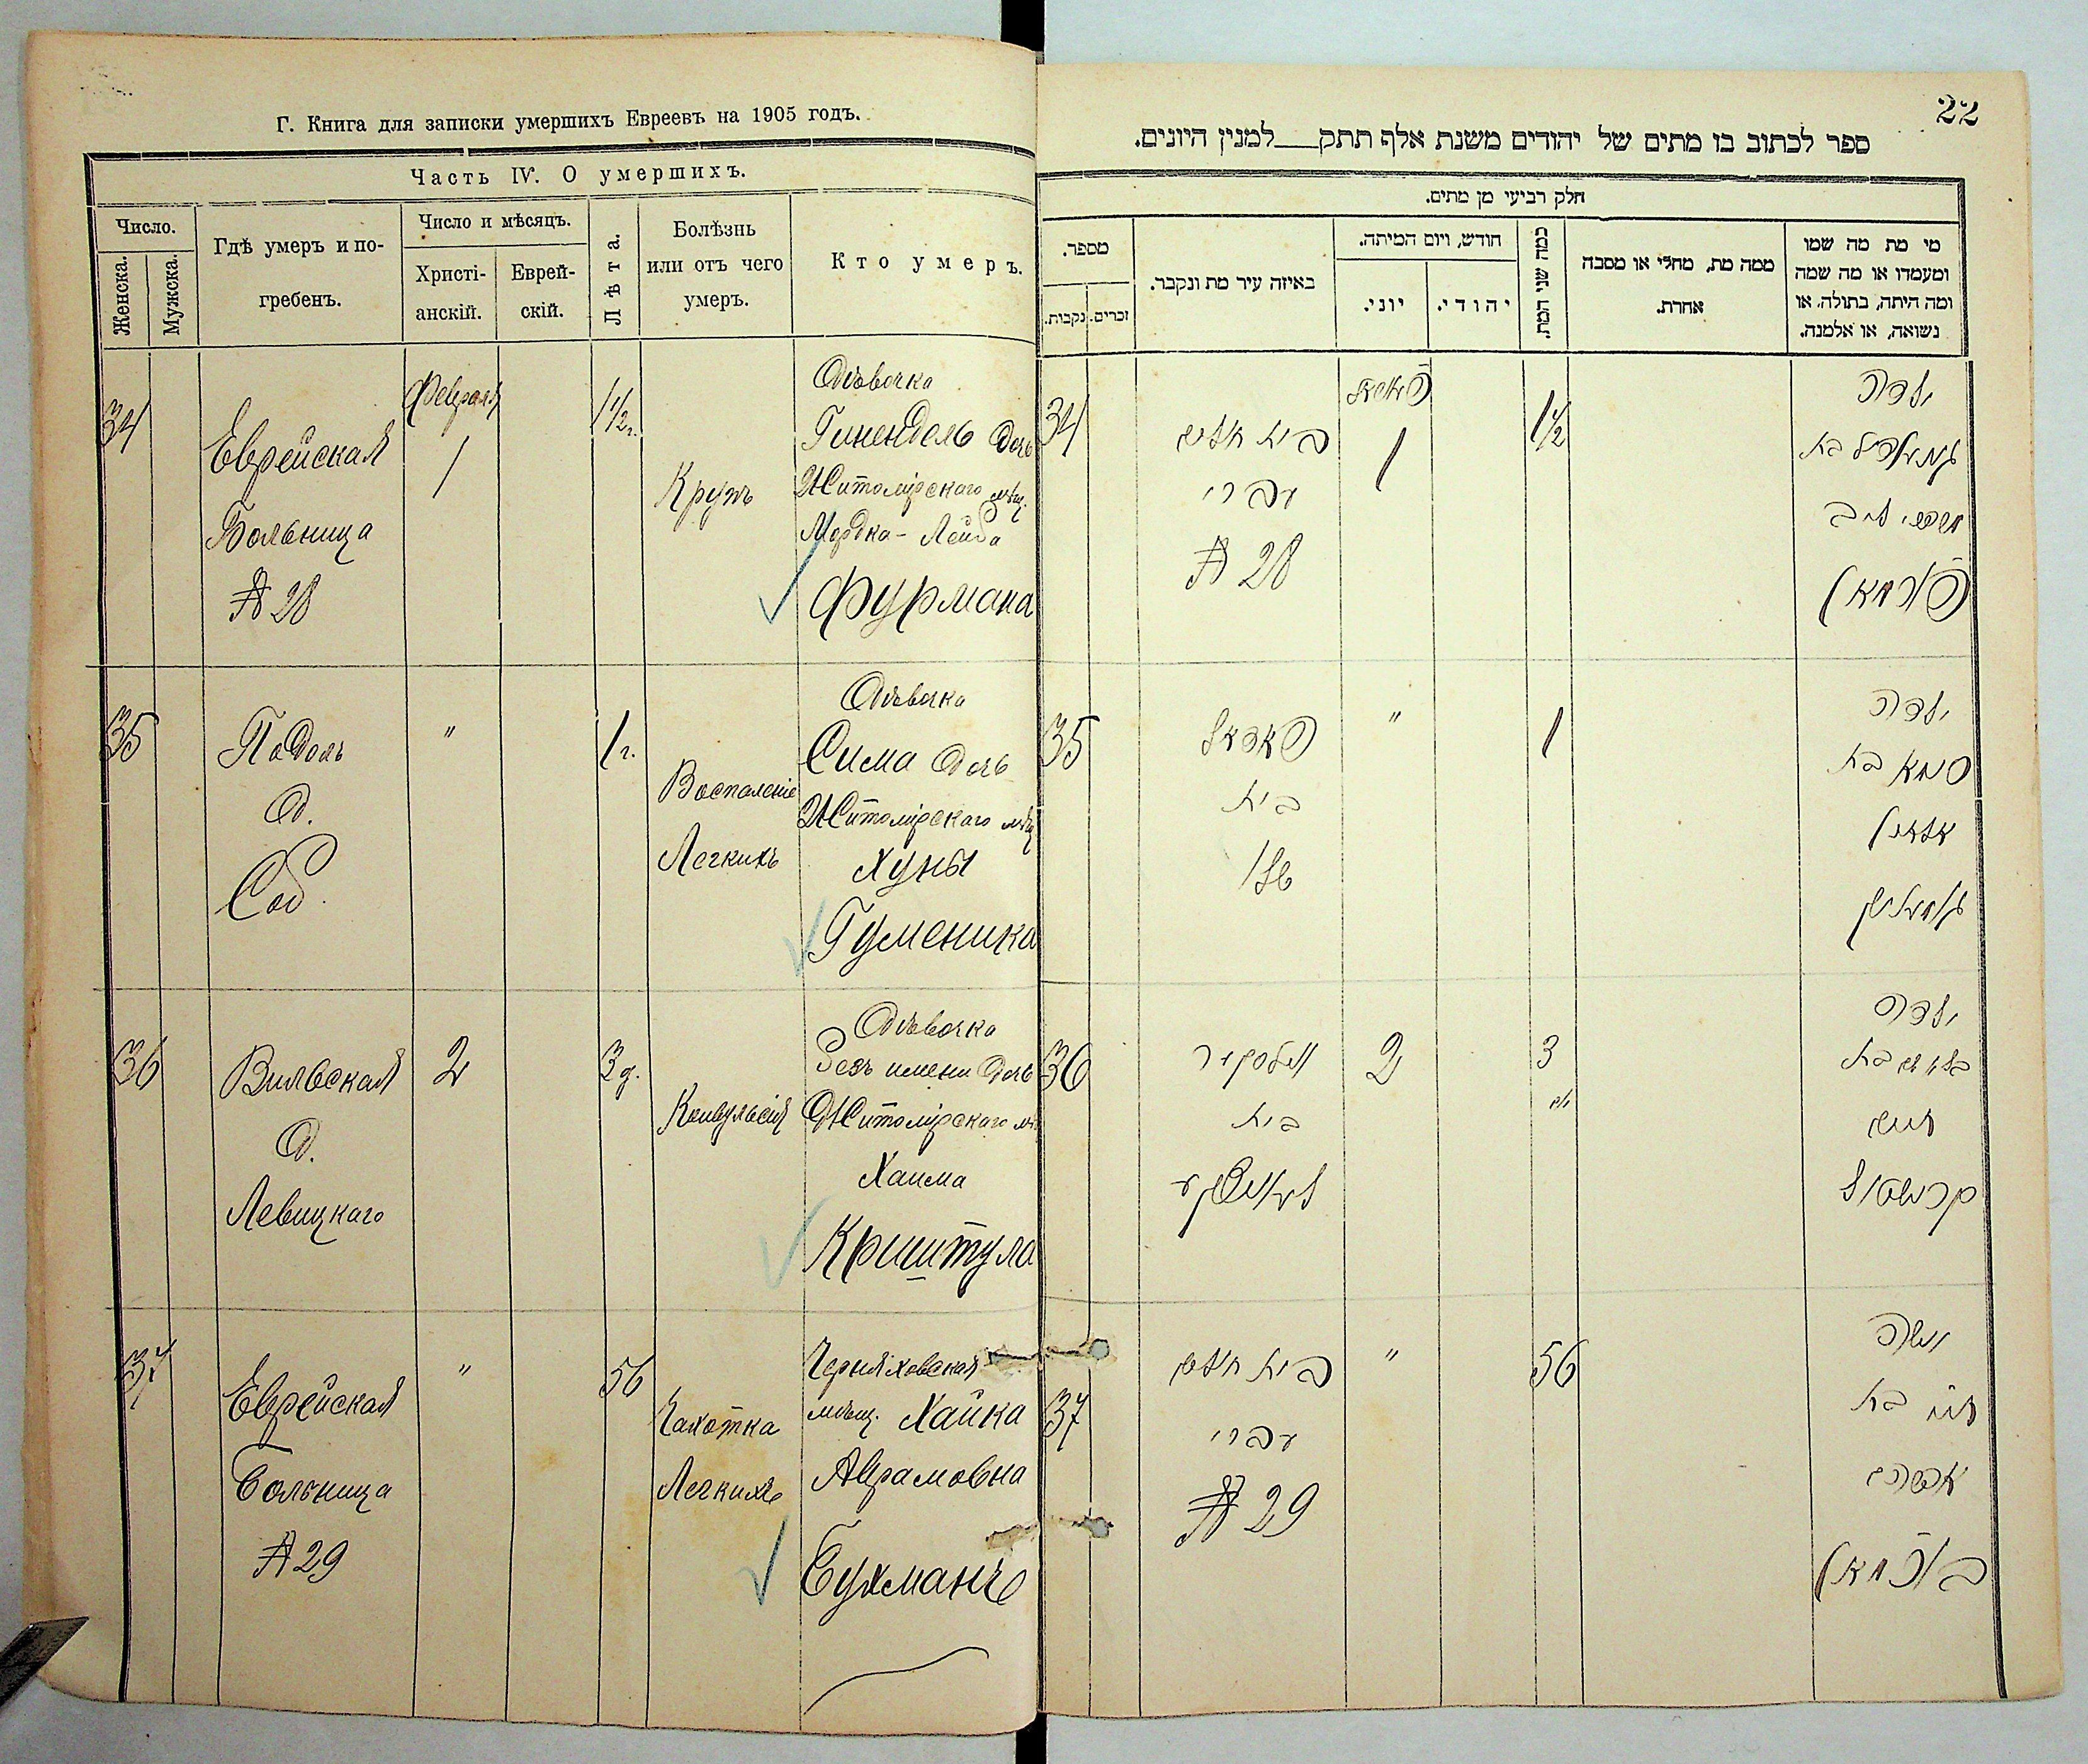 Г. Книга для записки умершихъ Евреевъ на 1905 годъ.
Часть IV. О умершихъ.
Число.
Женска.
Мужска.
Гдѣ умеръ и по-
гребенъ.
Число и мѣсяцъ.
Христі-
анскій.
Еврей-
скій.
Лѣта.
Болѣзнь
или отъ чего
умеръ.
Кто умеръ.
34
Еврейская
Больница
№ 28
Февраля
1
1 1/2 г.
Крупъ
Дѣвочка
Гинендель дочь
Житомірскаго мѣщ.
Мордка-Лейба
Фурмана
35
Подолъ
д.
Соб.
"
1 г.
Воспаленіе
Легкихъ
Дѣвочка
Сима дочь
Житомірскаго мѣщ
Хуны
Гуменика
36
Вильская
д.
Левицкаго
2
3 д.
Конвульсія
Дѣвочка
безъ имени дочь
Житомірскаго мѣ
Хаима
Криштула
37
Еврейская
Больница
№ 29
"
56
Чахотка
Легкихъ
Черняховская
мѣщ. Хайка
Абрамовна
Бухманъ
22
ספר לכתוב בו מתים של יהודים משנת אלף תתק___למנין היונים.
חלק רביעי מן מתים.
מספר.
נקבות.
זכרים.
באיזה עיר מת ונקבר.
חודש, ויום המיתה.
יוני.
יהודי.
כמה שני המת.
ממה מת, מחלי או מסבה
אחרת.
מי מת מה שמו
ומעמדו או מה שמה
ומה היתה, בתולה, או
נשואה, או אלמנה.
34
בית חולים
עברי
№ 28
1
1 1/2
ילדה
בת
פורמאן
35
פאדאל
בית
"
1
ילדה
סימא בת
36
ווילסקיר
בית
2
3
ילדה
בלי שם בת
חיים
קרישטול
37
בית חולים
עברי
№ 29
"
56
אשה
חי' בת
אברהם
בוכמאן